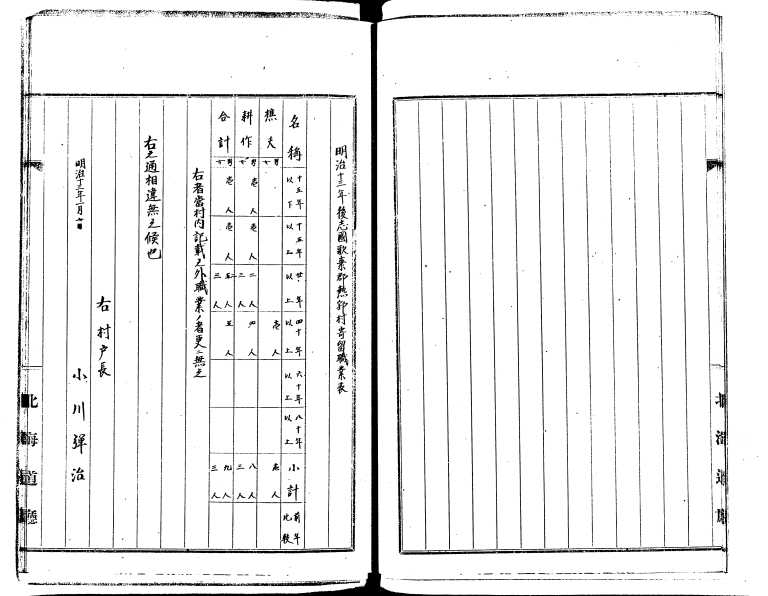 明治十三年後志國歌棄郡熱郛村寄留職業表
名稱 十五年以下 十五年以上 廿年以上 四十年以上 六十年以上 八十年以上 小計 前年比較
樵夫 男女 壱人 壱人
耕作 男女 壱人 壱人 二人 二人 四人 八人 三人
合計 男女 壱人 壱人 三人 五人 九人 三人
右者當村内記載之外職業ノ者更ニ無之
右之通相違無之候也
明治十三年一月
右村戸長
小川弾治
北海道廳
北海道廳